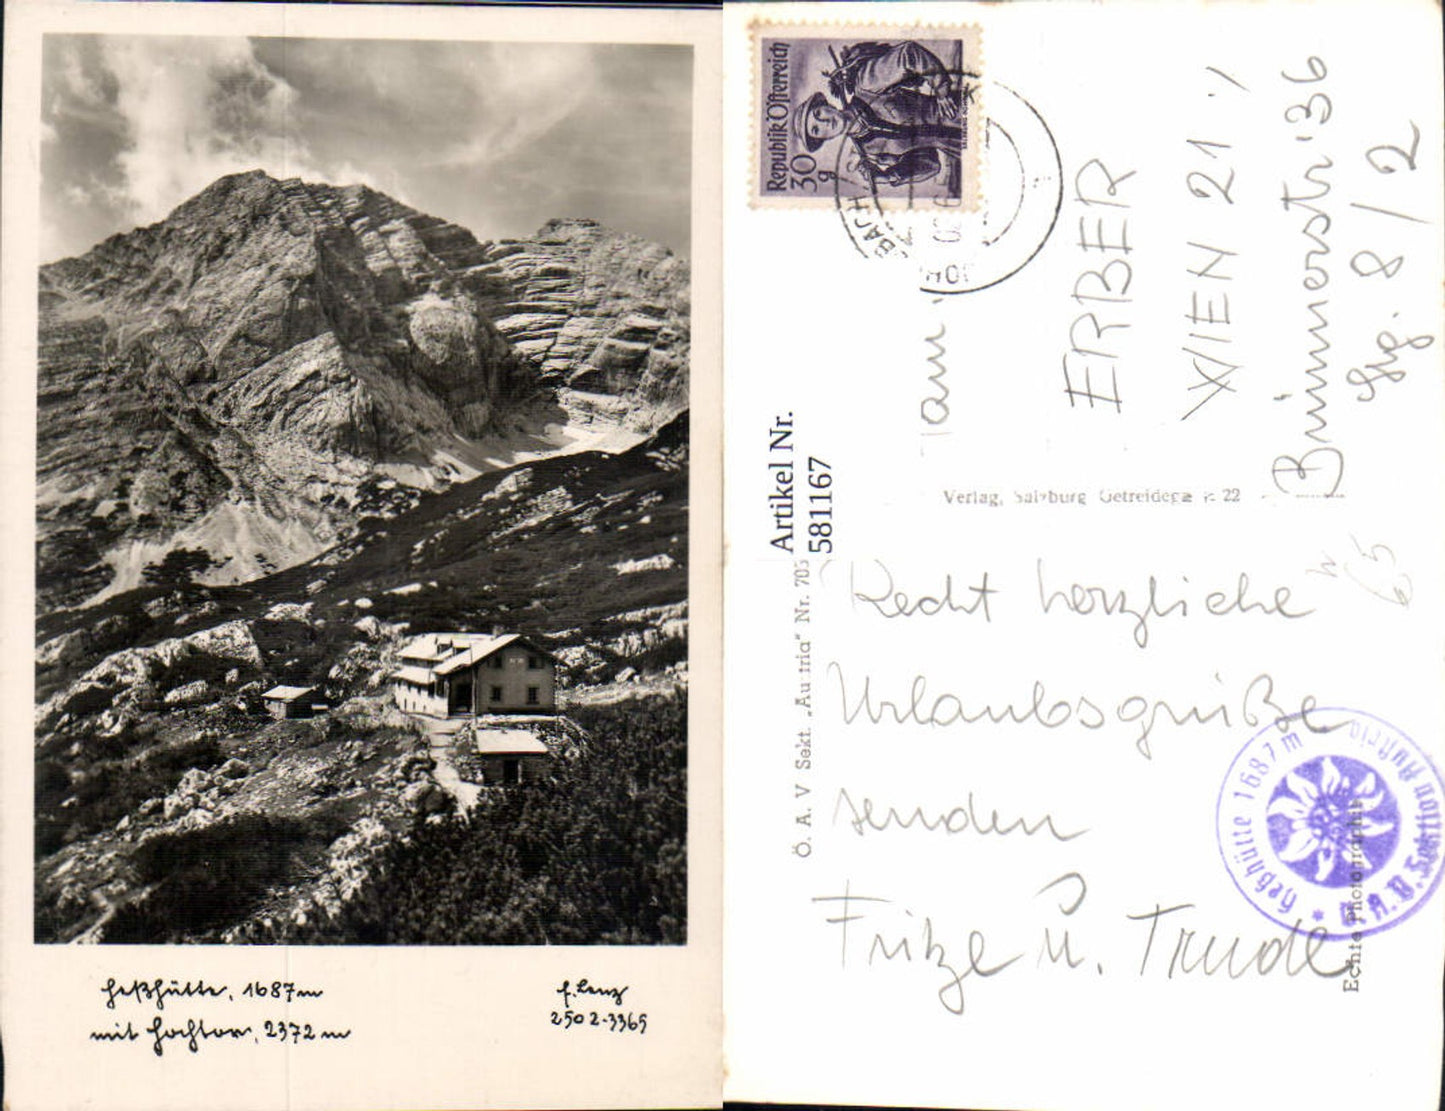 Heßhütte, 1687m
mit Hochtor, 2372m
f. Lenz
2502-3365
Republik Österreich
30
g
BACH
JOH
Fam.
ERBER
WIEN 21
Brünnerstr. 36
Stg. 8/2
Artikel Nr.
581167
Verlag, Salzburg Getreidega 22
Ö. A. V Sekt. „Austria“ Nr. 705
Recht herzliche
Urlaubsgrüße
senden
Fritze u. Trude
Heßhütte 1687 m
Ö. A. V. Sektion Austria
Echte Photographie
65